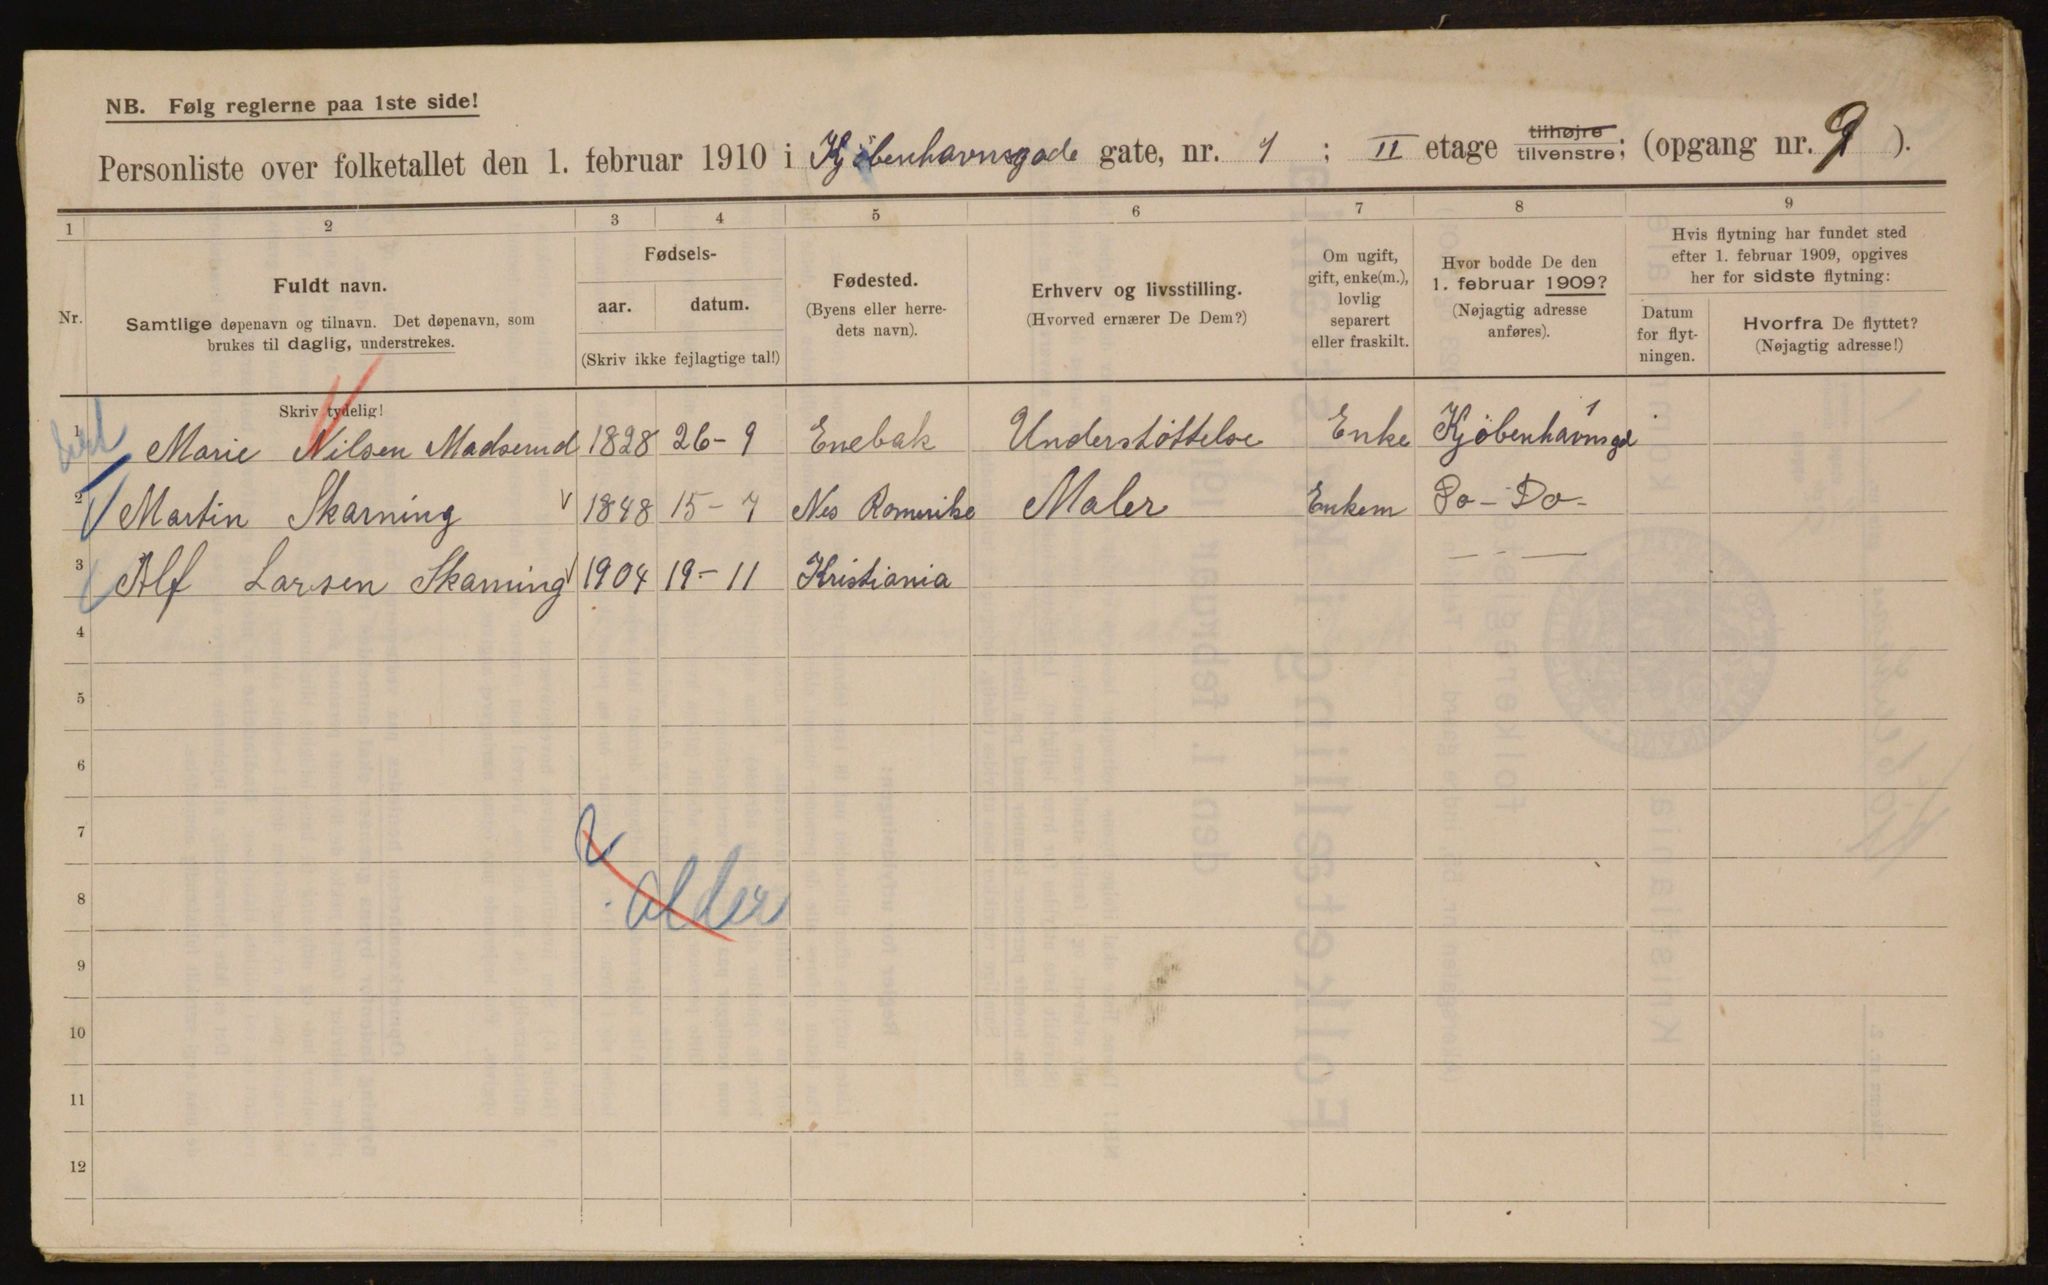 NB. Følg reglerne paa 1ste side!
Personliste over folketallet den 1. februar 1910 i Kjøbenhavnsgade gate, nr. 1 ; II etage tilhøjre tilvenstre; (opgang nr. 9 ).
1 2 3 4 5 6 7 8 9
Nr.
Fuldt navn.
Samtlige døpenavn og tilnavn. Det døpenavn, som
brukes til daglig, understrekes.
Fødsels-
aar. datum.
(Skriv ikke fejlagtige tal!)
Fødested.
(Byens eller herre-
dets navn).
Erhverv og livsstilling.
(Hvorved ernærer De Dem?)
Om ugift,
gift, enke(m.),
lovlig
separert
eller fraskilt.
Hvor bodde De den
1. februar 1909?
(Nøjagtig adresse
anføres).
Hvis flytning har fundet sted
efter 1. februar 1909, opgives
her for sidste flytning:
Datum
for flyt-
ningen.
Hvorfra De flyttet?
(Nøjagtig adresse!)
Skriv tydelig!
1 Marie Nilsen Madserud 1828 26-9 Enebak Understøttelse Enke Kjøbenhavnsgd 1
2 Martin Skarning 1848 15-7 Nes Romerike Maler Enkem Do-Do-
3 Alf Larsen Skarning 1904 19-11 Kristiania — - —
4
5
6
7
8 Alder
9
10
11
12